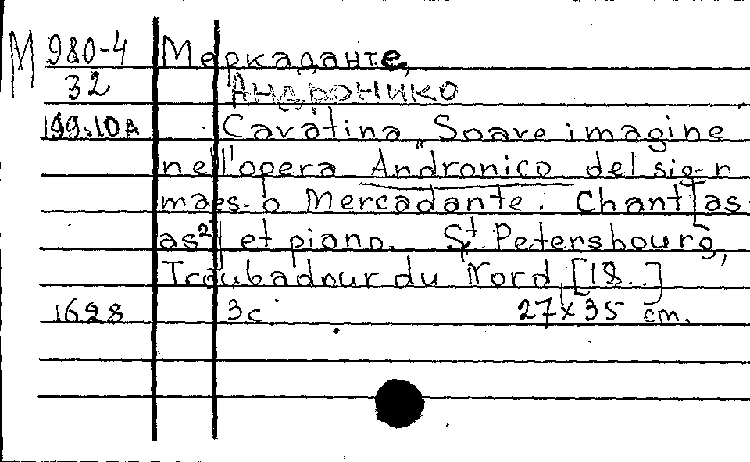 М 980-4 Меркаданте,
32 Андронико
199.10А Cavatina „Soave imagine
nell'opera Andronico del sig-r
maes-o Mercadante. Chant [as-
as²] et piano. St Petersbourg,
Troubadour du Nord [18..]
1628 3с 27x35 cm.